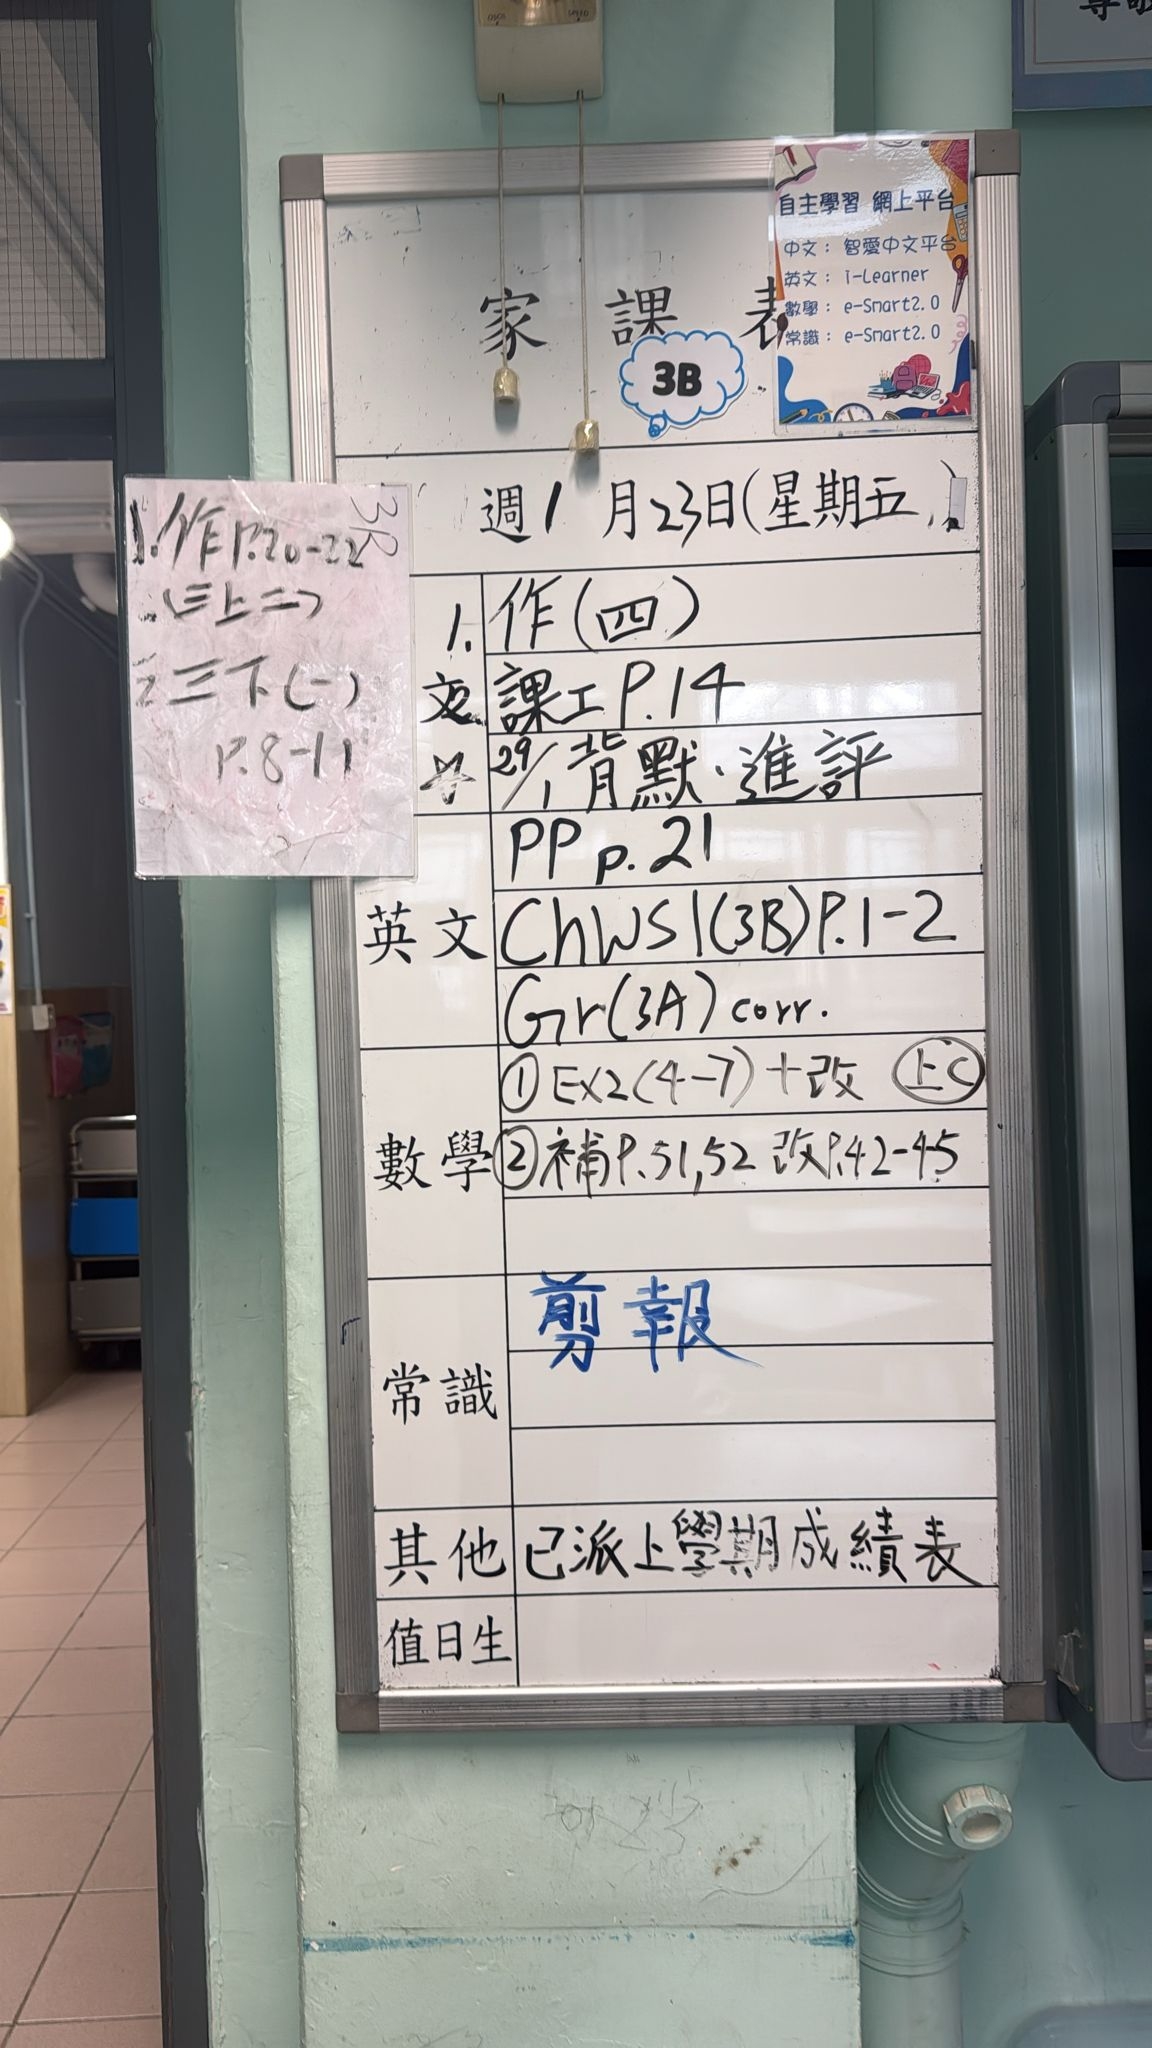 自主學習 網上平台
中文： 智愛中文平台
英文： i-Learner
數學： e-Smart2.0
常識： e-Smart2.0
家 課 表
3B
週1 月23日(星期五)
3B
1. 作P.20-22
(三上二)
2 三下(一)
P.8-11
1. 作(四)
文 2. 課工P.14
☆ 29/1 背默、進評
PP p.21
英文 ChWS1(3B)P.1-2
Gr(3A) corr.
① EX2(4-7)+改 上C
數學 ②補P.51,52 改P.42-45
常識 剪報
其他 已派上學期成績表
值日生